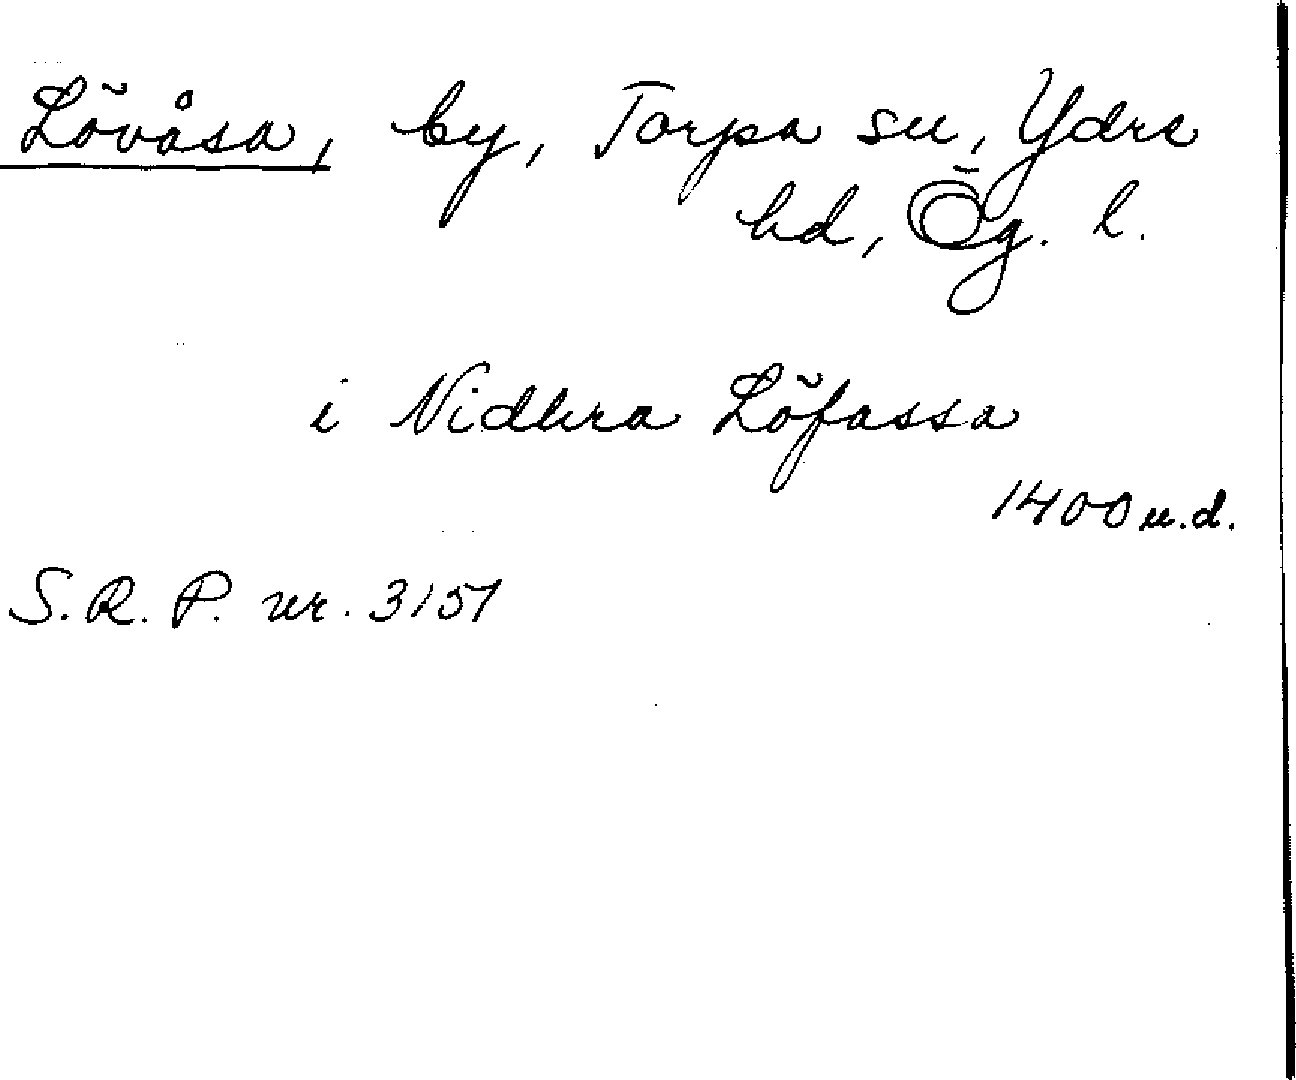 Lövåsa, by, Torpa sn, Ydre
hd, Ög. l.
i Nidhra Löfassa
1400 u.d.
S.R.P. nr. 3151